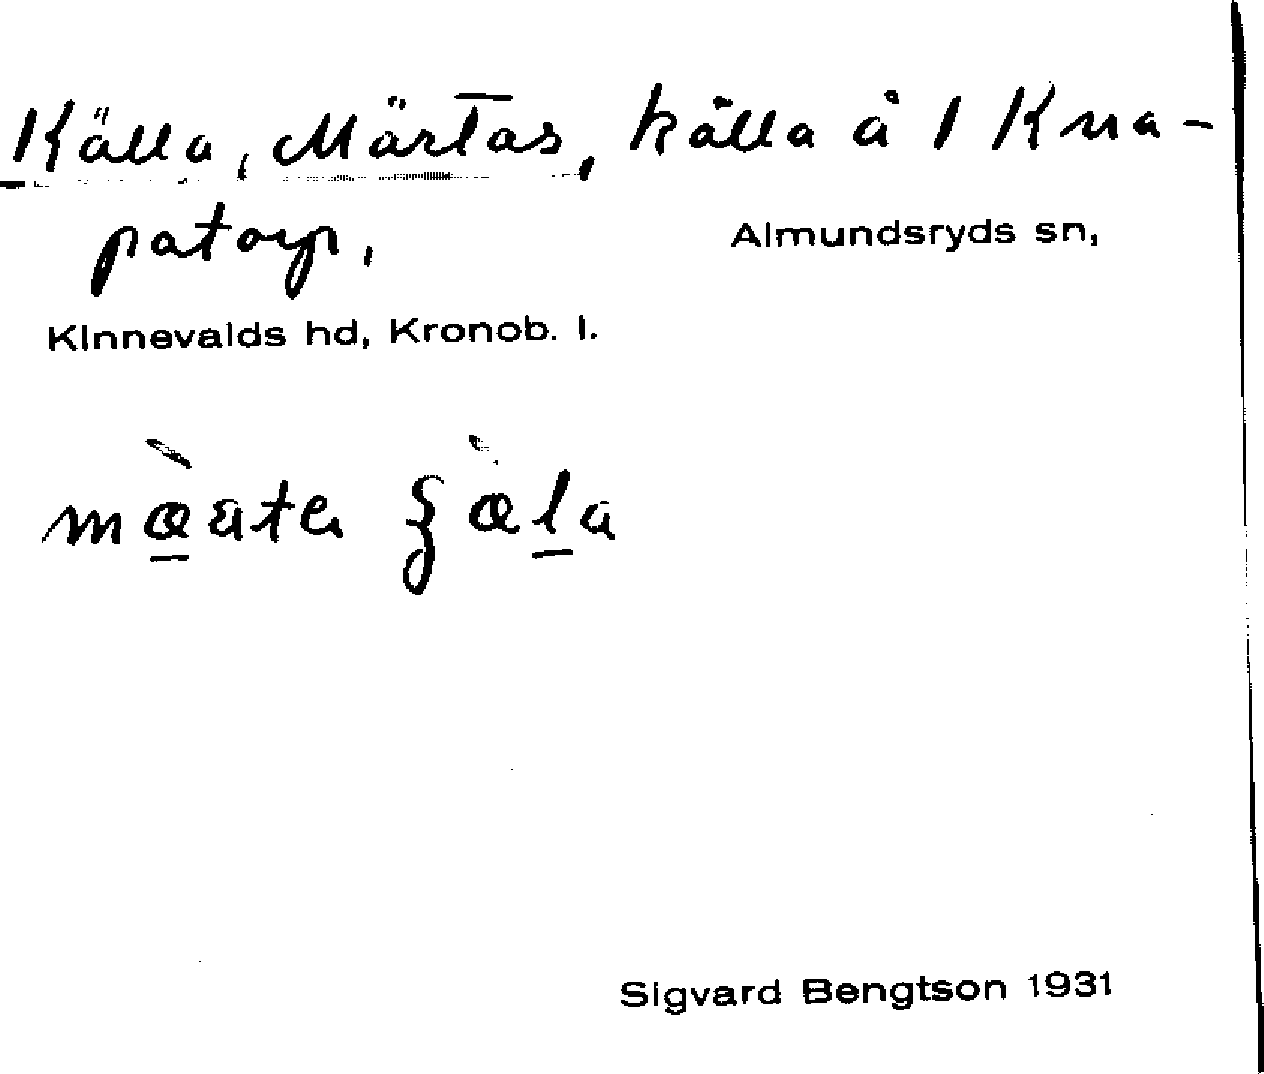 Källa, Märtas, källa å 1 Kna-
patorp,
Almundsryds sn,
Kinnevalds hd, Kronob. l.
Sigvard Bengtson 1931